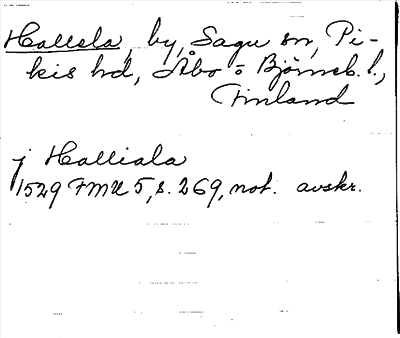 Hallela, by, Sagu sn, Pi-
kis hd, Åbo o Björneb. l.,
Finland
j Halliala
1529 FMU 5, s. 269, not. avskr.